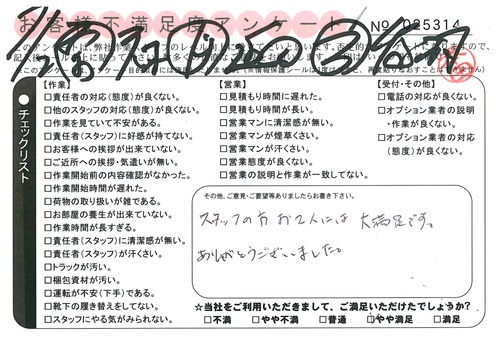 お客様不満足度アンケート
No 025314
チェックリスト
【作業】
□責任者の対応(態度)が良くない。
□他のスタッフの対応(態度)が良くない。
□作業を見ていて不安がある。
□責任者(スタッフ)に好感が持てない。
□お客様への挨拶が出来ていない。
□ご近所への挨拶・気遣いが無い。
□作業開始前の内容確認がなかった。
□作業開始時間が遅れた。
□荷物の取り扱いが雑である。
□お部屋の養生が出来ていない。
□作業時間が長すぎる。
□責任者(スタッフ)に清潔感が無い。
□責任者(スタッフ)が汗くさい。
□トラックが汚い。
□梱包資材が汚い。
□運転が不安(下手)である。
□靴下の履き替えをしてない。
□スタッフにやる気がみられない。
【営業】
□見積もり時間に遅れた。
□見積もり時間が長い。
□営業マンに清潔感が無い。
□営業マンが煙草くさい。
□営業マンが汗くさい。
□営業態度が良くない。
□営業の説明と作業が一致してない。
【受付・その他】
□電話の対応が良くない。
□オプション業者の説明
・作業が良くない。
□オプション業者の対応
(態度)が良くない。
その他、ご意見・ご要望等ありましたらお書き下さい。
スタッフの方 お2人には 大満足です。
ありがとうございました。
☆当社をご利用いただきまして、ご満足いただけたでしょうか?
□不満 □やや不満 □普通 □やや満足 □満足